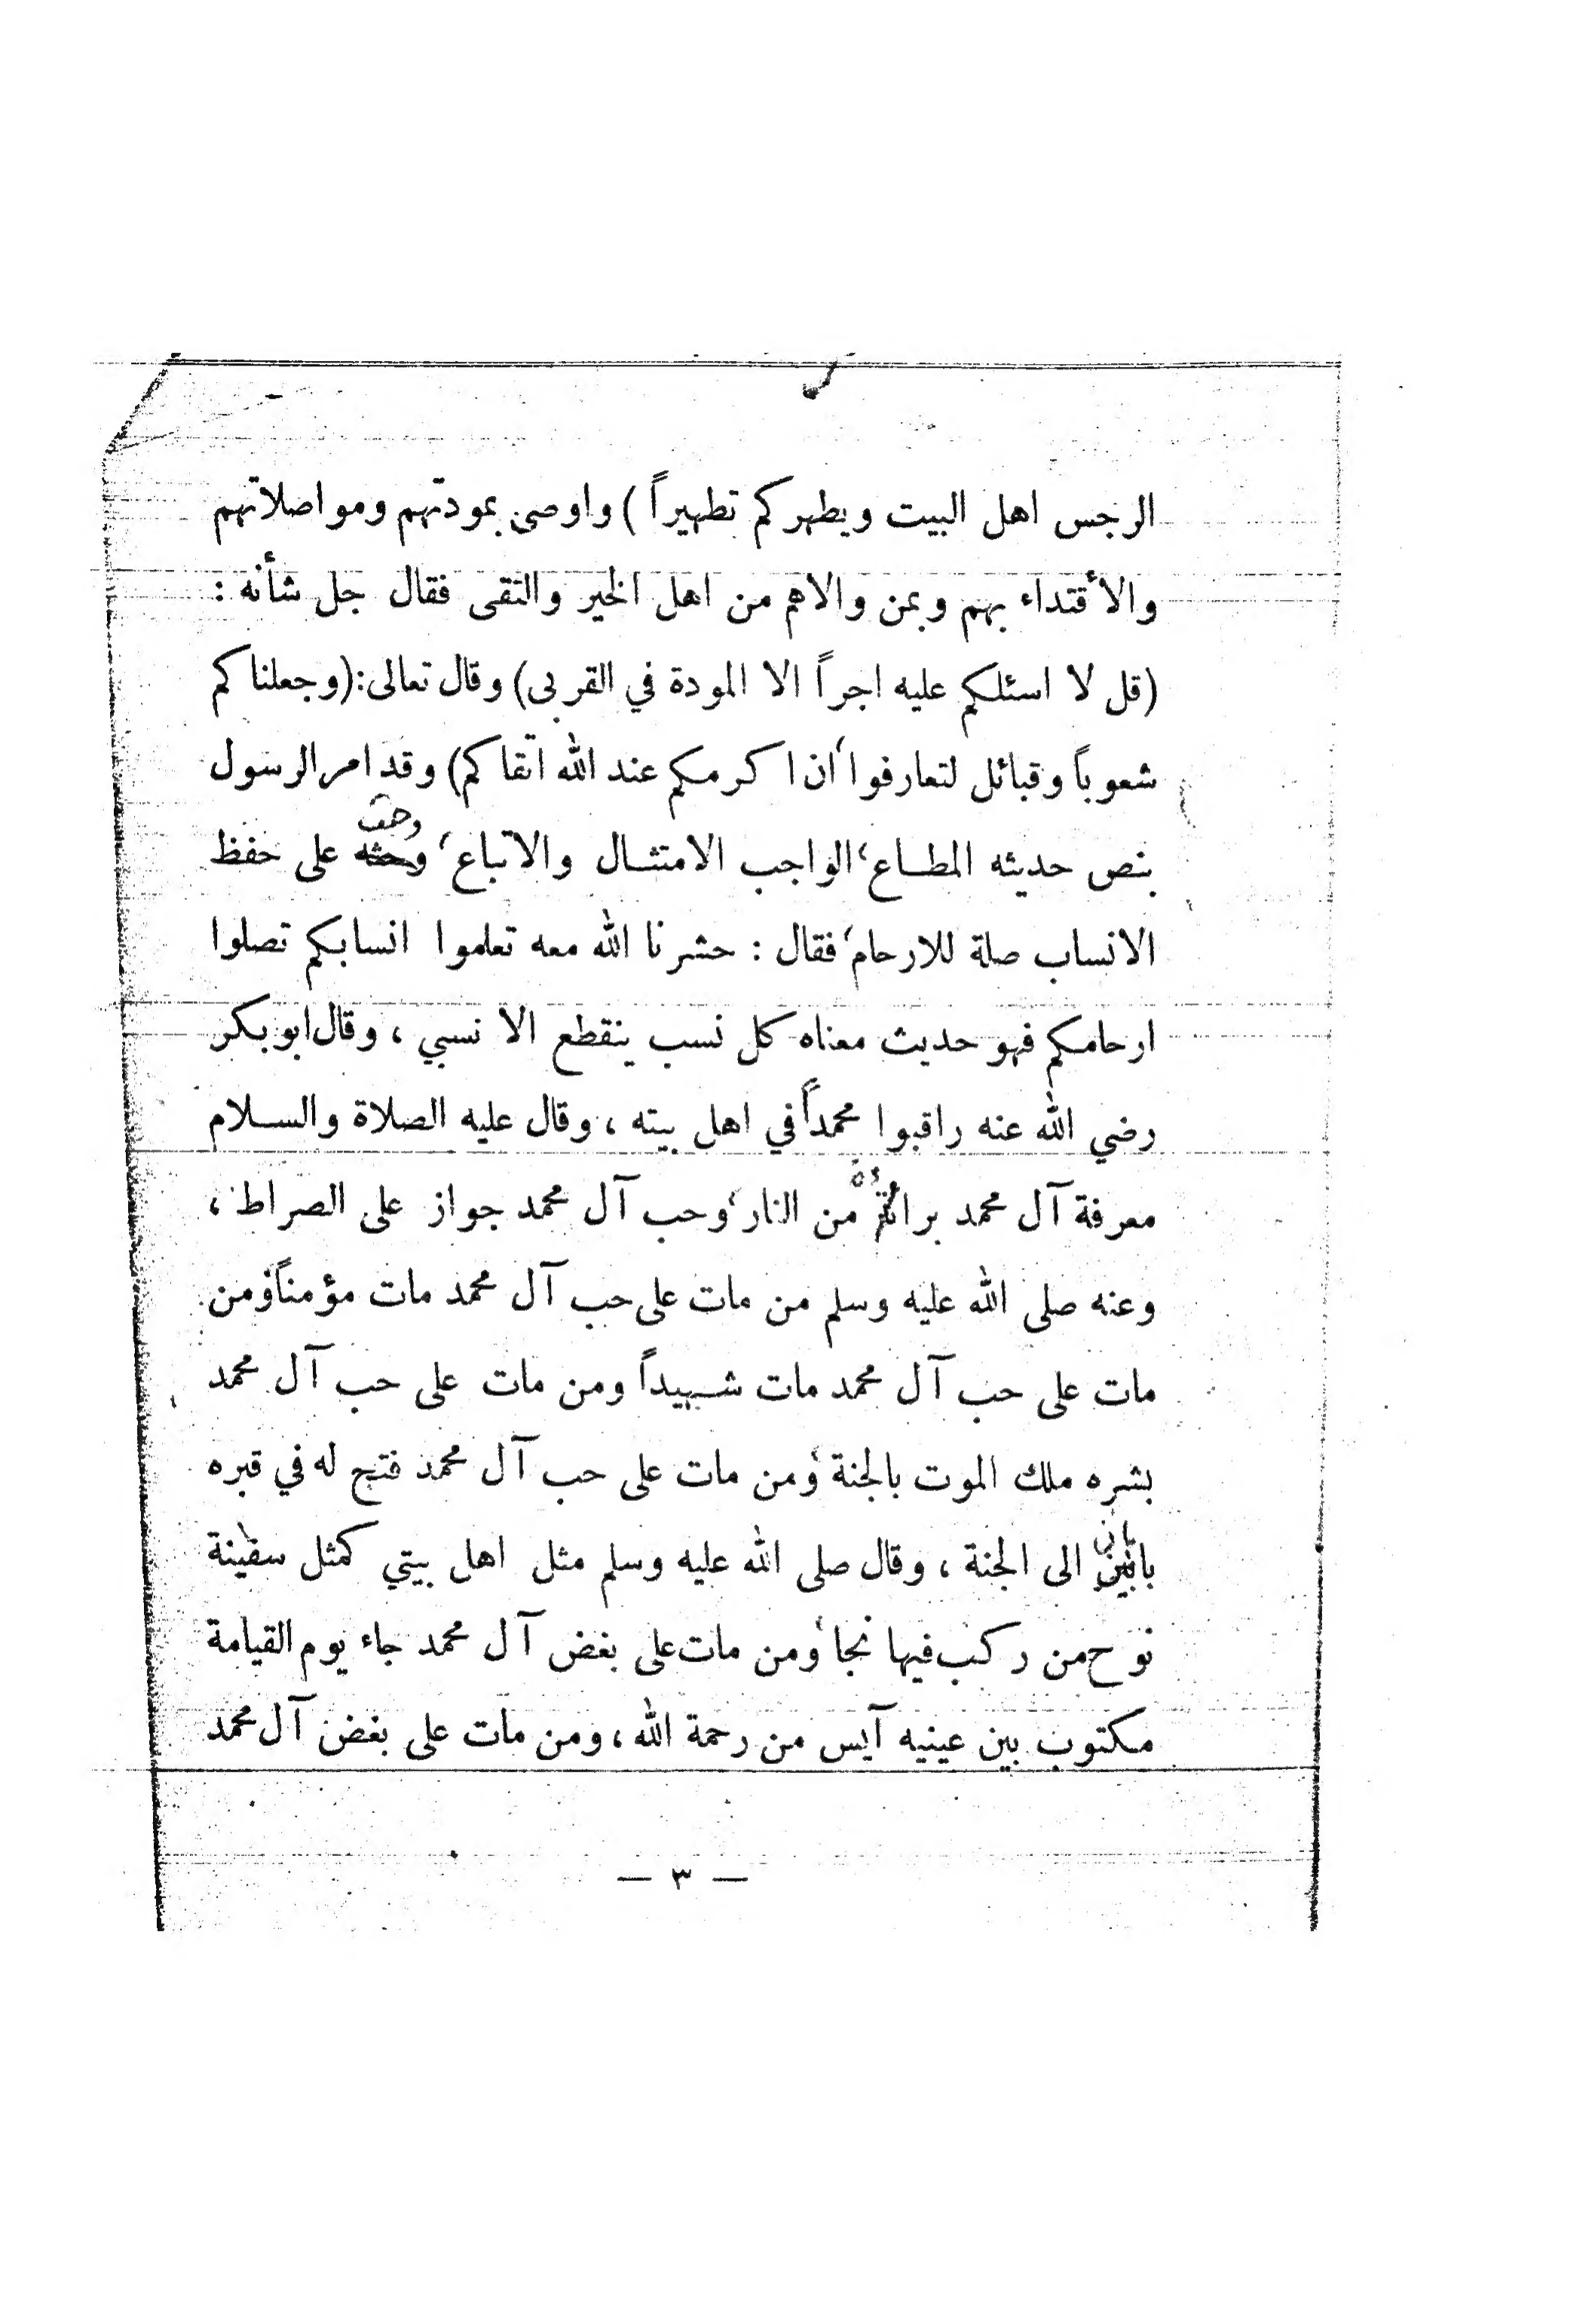 الرجس اهل البيت ويطهركم تطهيراً ) واوصى بمودتهم ومواصلاتهم
والأقتداء بهم وبمن والاهم من اهل الخير والتقى فقال جل شأنه :
(قل لا اسئلكم عليه اجراً الا المودة في القربى) وقال تعالى:(وجعلناكم
شعوباً وقبائل لتعارفوا ان اكرمكم عند الله اتقاكم) وقد امر الرسول
وحث
بنص حديثه المطاع، الواجب الامتثال والاتباع، وحثه على حفظ
الانساب صلة للارحام، فقال : حشرنا الله معه تعلموا انسابكم تصلوا
ارحامكم فهو حديث معناه كل نسب ينقطع الا نسبي ، وقال ابو بكر
رضي الله عنه راقبوا محمداً في اهل بيته ، وقال عليه الصلاة والسلام
معرفة آل محمد برائة من النار، وحب آل محمد جواز على الصراط ،
وعنه صلى الله عليه وسلم من مات على حب آل محمد مات مؤمناً، ومن
مات على حب آل محمد مات شهيداً ومن مات على حب آل محمد
بشره ملك الموت بالجنة، ومن مات على حب آل محمد فتح له في قبره
بابين الى الجنة ، وقال صلى الله عليه وسلم مثل اهل بيتي كمثل سفينة
نوح من ركب فيها نجا، ومن مات على بغض آل محمد جاء يوم القيامة
مكتوب بين عينيه آيس من رحمة الله ، ومن مات على بغض آل محمد
— ٣ —